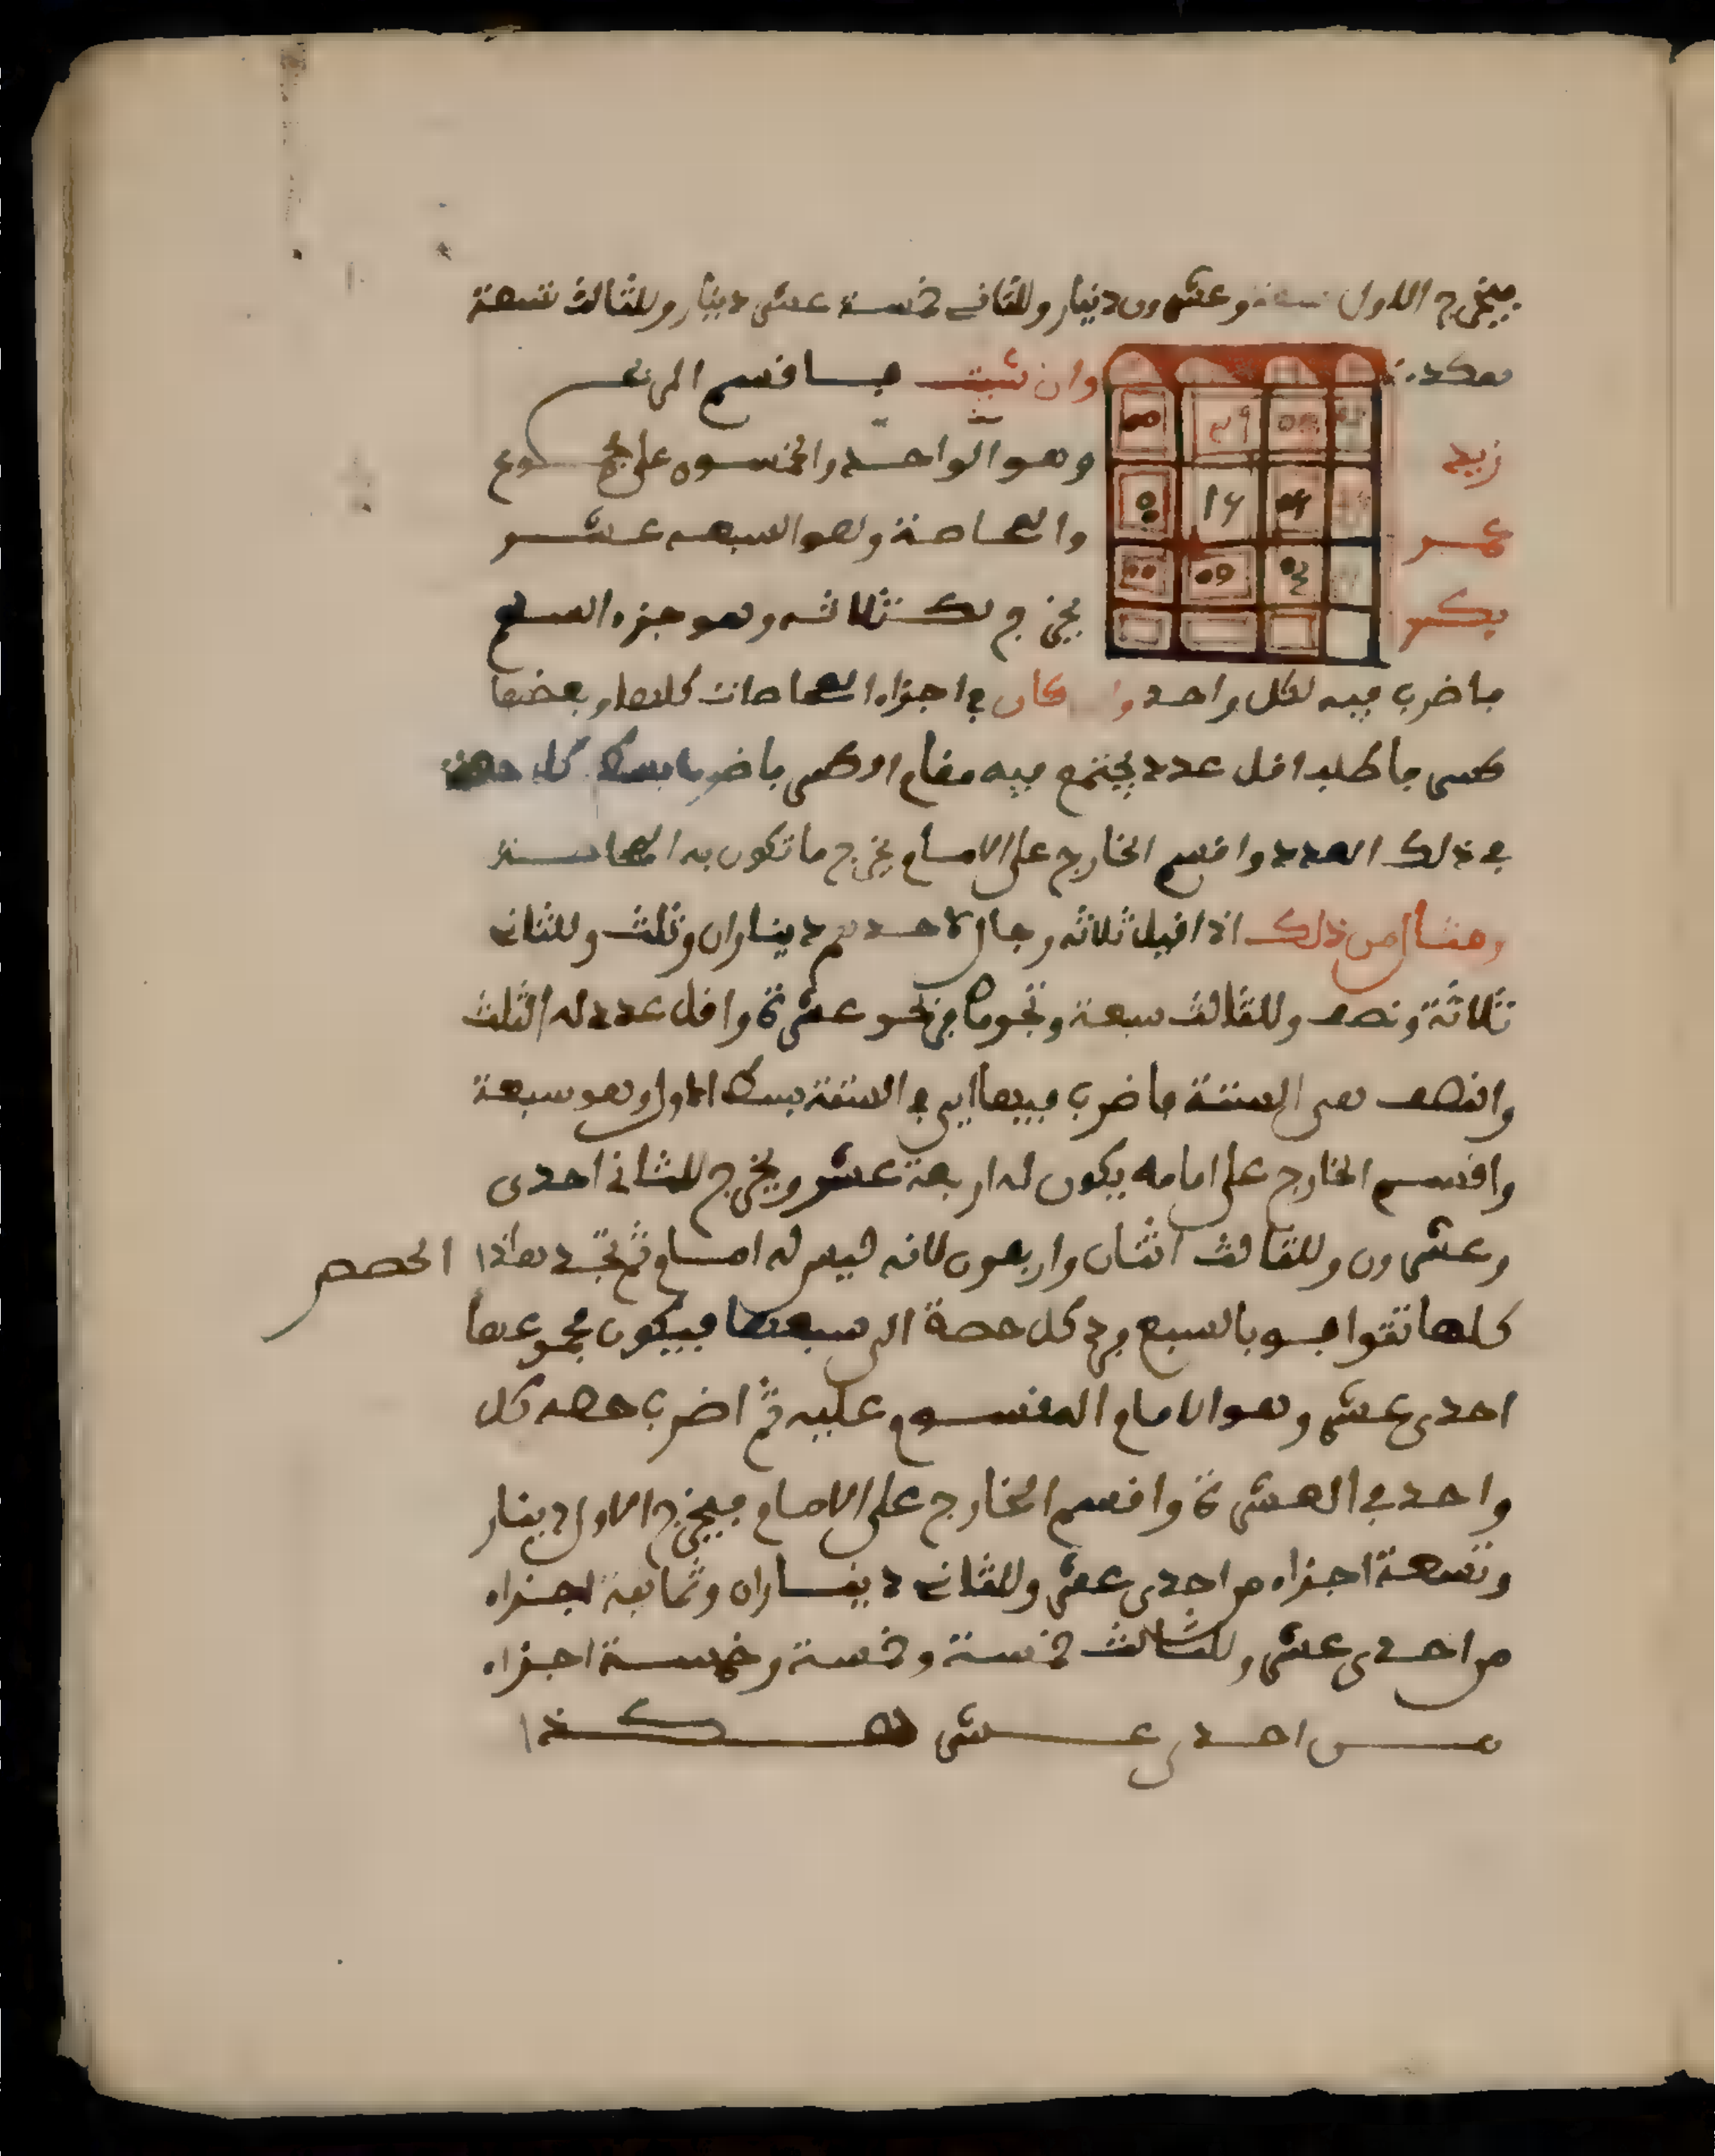 فيخرج للاول سبعة وعشرون دينار وللثاني خمسة عشر دينار وللثالث تسعة
هكذا
وان شيت فاقسم المربح
زيد
وهو الواحد والخمسون على مجموع
عمر
والمحاصة وهو السبعة عشر
بكر
يخرج لك ثلاثة وهو جزء السهم
فاضرب فيه لكل واحد وان كان في اجزاء المحاصات كلها او بعضها
كسر فاطلب اقل عدد يجتمع فيه مقام الكسر فاضرب بسط كل حصة
في ذلك العدد واقسم الخارج على الامام يخرج ما تكون به المحاصة
ومثال من ذلك اذا قيل ثلاثة رجال لاحدهم ديناران وثلث وللثاني
ثلاثة ونصف وللثالث سبعة وتجوا عشرة واقل عدد له الثلث
والنصف هي الستة فاضرب فيها اي في الستة بسط الاول وهو سبعة
واقسم الخارج على امامه يكون له اربعة عشر ويخرج للثاني احدى
وعشرون وللثالث اثنان واربعون لانه ليس له امام ثم تجد هاذا الحصص
كلها تتوافق بالسبع فرد كل حصة الى سبعها فيكون مجموعها
احدى عشر وهو الامام المقسوم عليه ثم اضرب حصة كل
واحد في العشرة واقسم الخارج على الامام فيخرج للاول دينار
وتسعة اجزاء من احدى عشر وللثاني ديناران وثمانية اجزاء
من احدى عشر وللثالث خمسة وخمسة وخمسة اجزاء
من احدى عشر هكذا